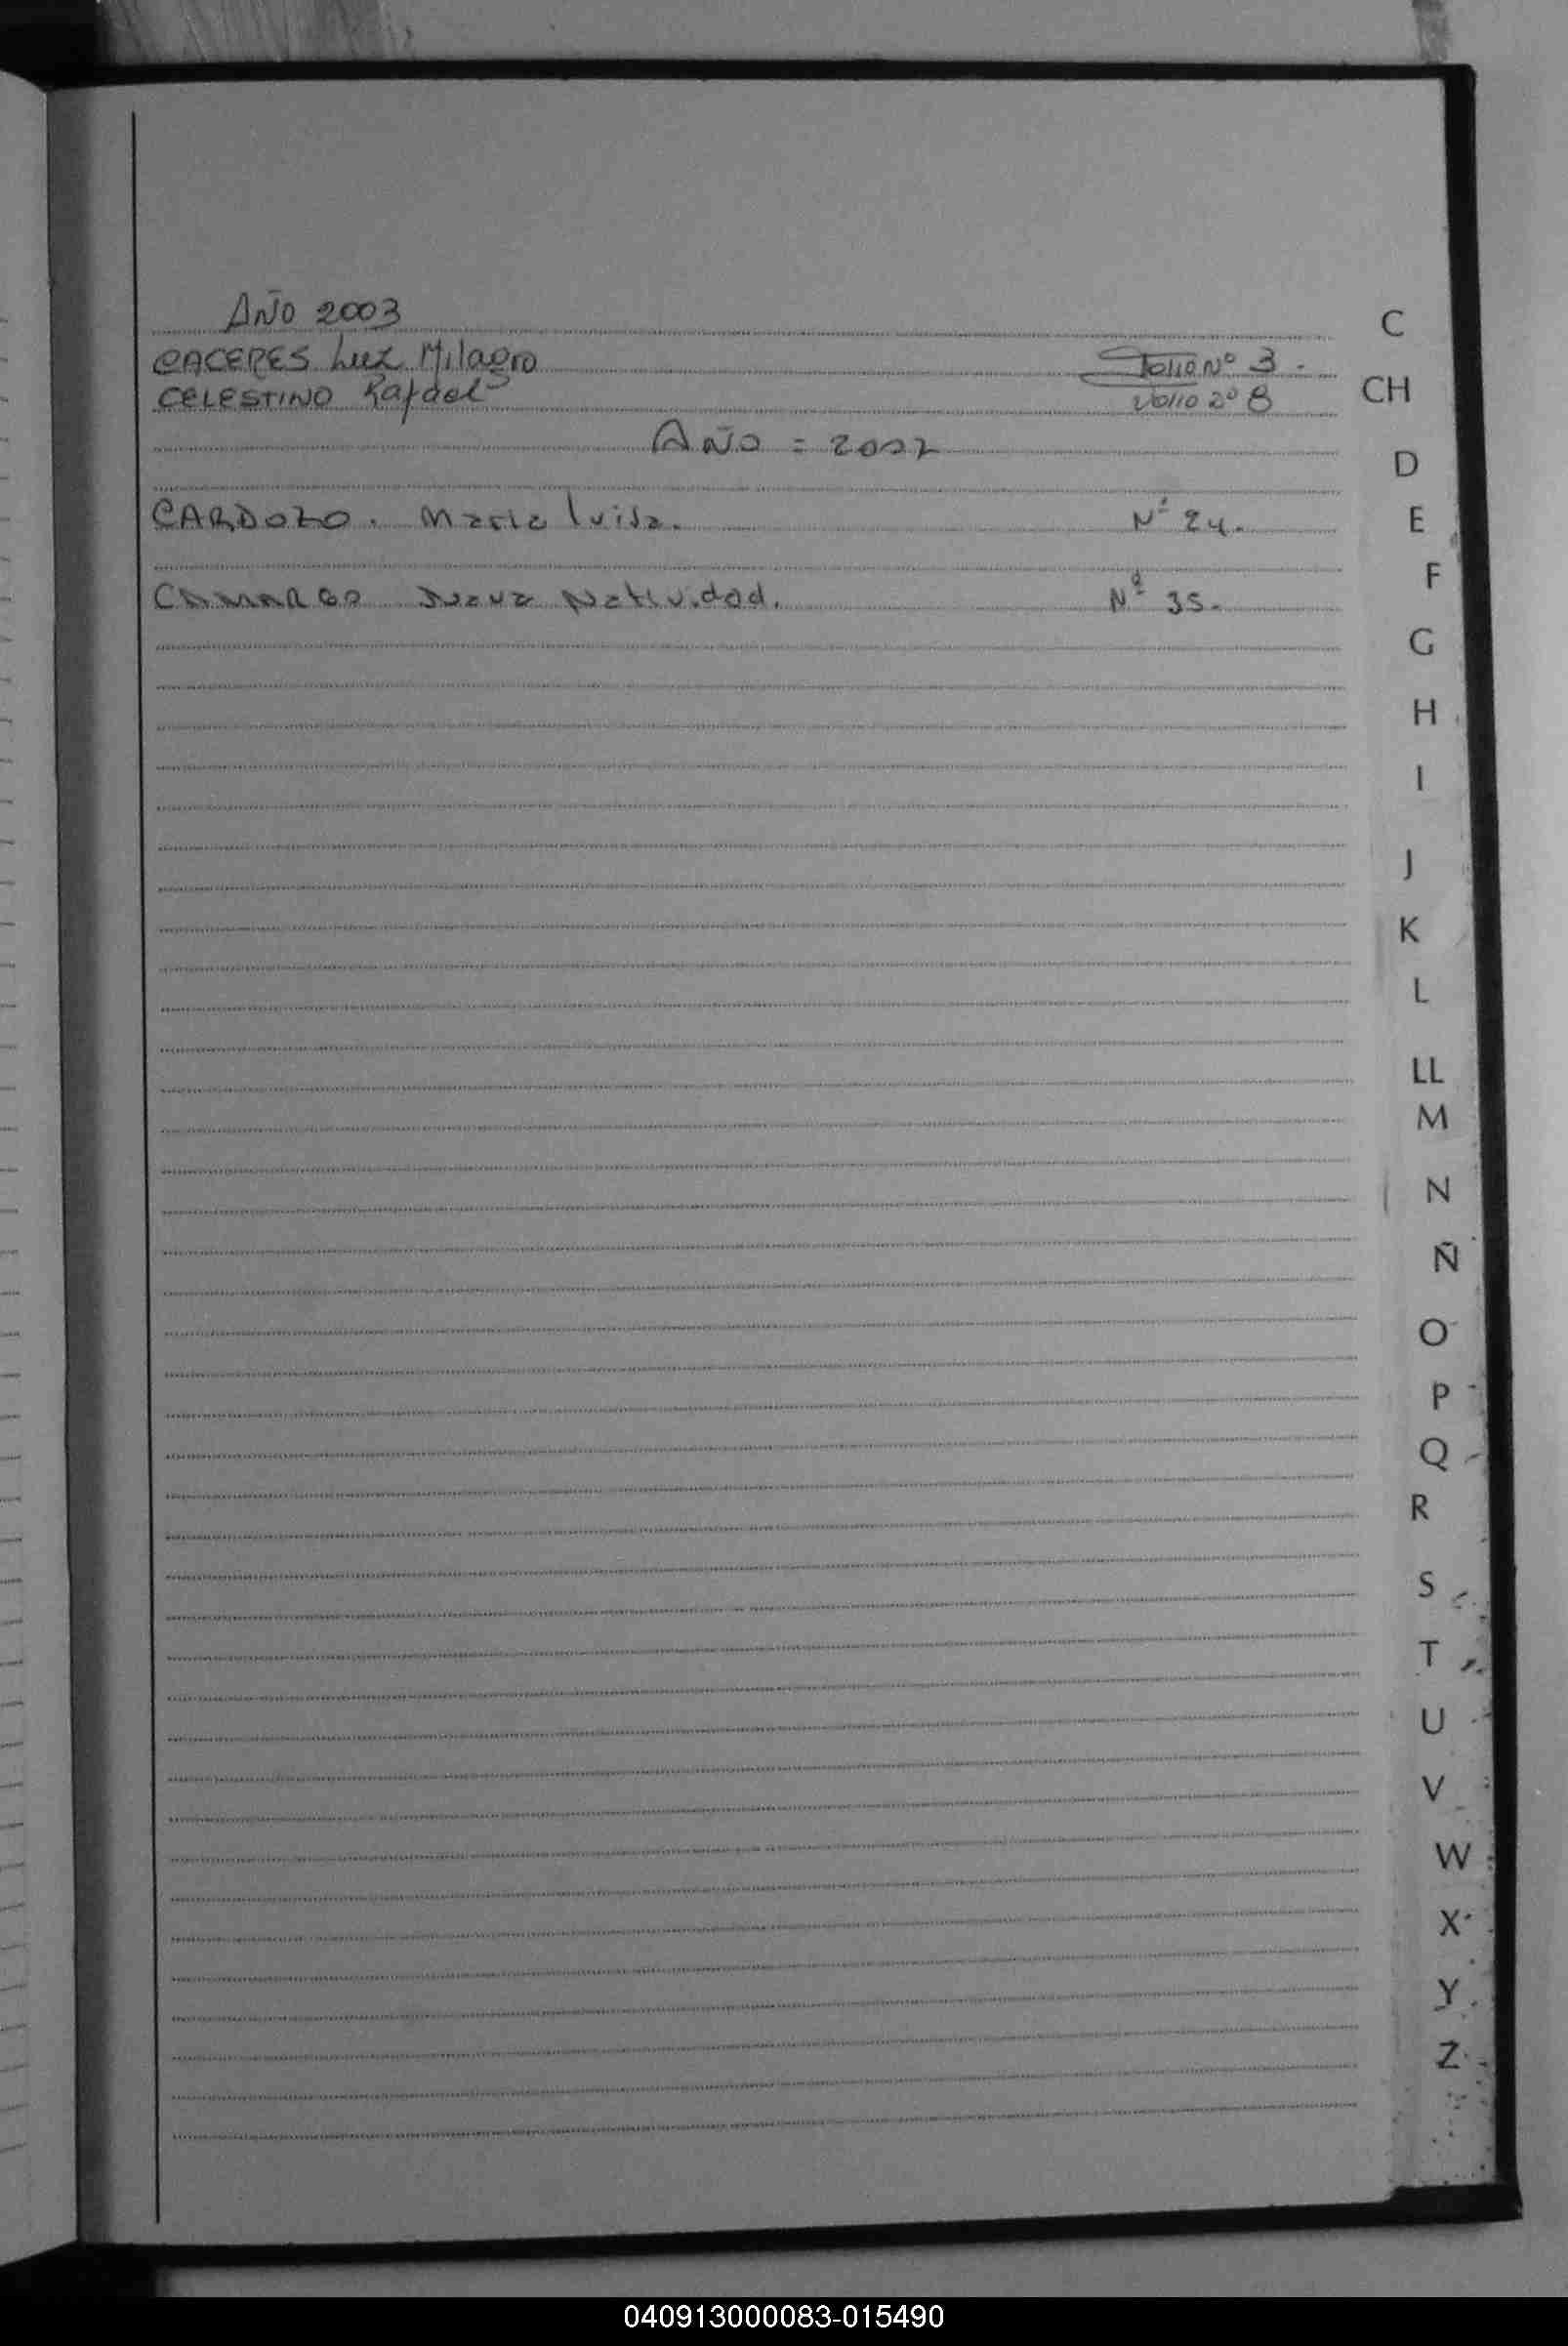 AÑO 2003
CACERES Luz Milagro Folio Nº 3.
CELESTINO Rafael Folio Nº 8
AÑO = 2002
CARDOZO. Maria Luisa. Nº 24.
CAMARGO Juana Natividad. Nº 35.
C
CH
D
E
F
G
H
I
J
K
L
LL
M
N
Ñ
O
P
Q
R
S
T
U
V
W
X
Y
Z
040913000083-015490